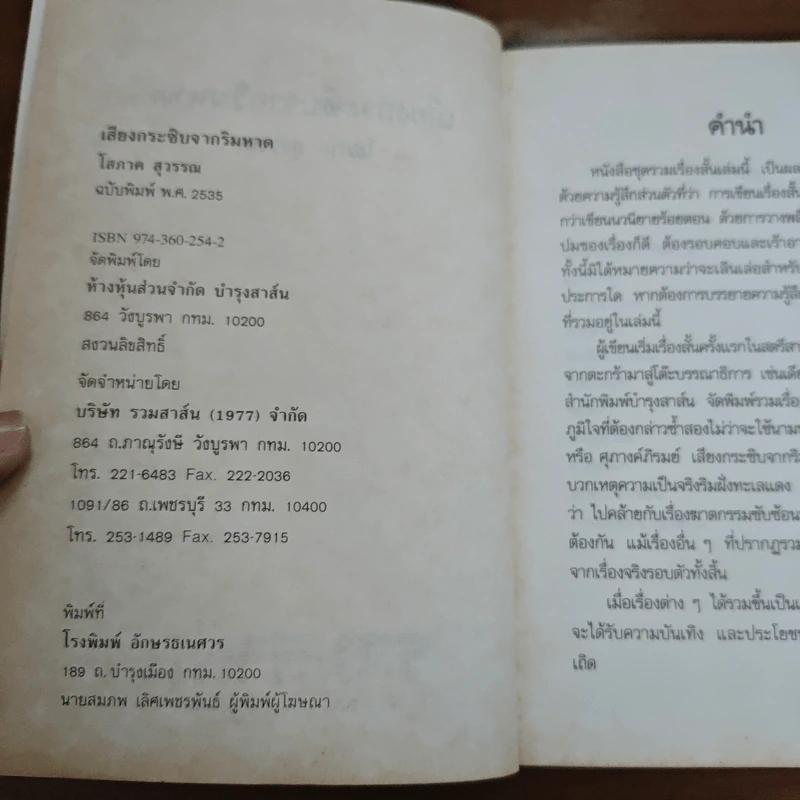 เสียงกระซิบจากริมหาด
โสภาค สุวรรณ
ฉบับพิมพ์ พ.ศ. 2535
ISBN 974-360-254-2
จัดพิมพ์โดย
ห้างหุ้นส่วนจำกัด บำรุงสาส์น
864 วังบูรพา กทม. 10200
สงวนลิขสิทธิ์
จัดจำหน่ายโดย
บริษัท รวมสาส์น (1977) จำกัด
864 ถ.ภาณุรังษี วังบูรพา กทม. 10200
โทร. 221-6483 Fax. 222-2036
1091/86 ถ.เพชรบุรี 33 กทม. 10400
โทร. 253-1489 Fax. 253-7915
พิมพ์ที่
โรงพิมพ์ อักษรธเนศวร
189 ถ.บำรุงเมือง กทม. 10200
นายสมภพ เลิศเพชรพันธ์ ผู้พิมพ์ผู้โฆษณา
คำนำ
หนังสือชุดรวมเรื่องสั้นเล่มนี้ เป็นผล
ด้วยความรู้สึกส่วนตัวที่ว่า การเขียนเรื่องสั้น
กว่าเขียนนวนิยายร้อยตอน ด้วยการวางพล
ปมของเรื่องก็ดี ต้องรอบคอบและเร้าอา
ทั้งนี้มิได้หมายความว่าจะเลินเล่อสำหรับ
ประการใด หากต้องการบรรยายความรู้สึก
ที่รวมอยู่ในเล่มนี้
ผู้เขียนเริ่มเรื่องสั้นครั้งแรกในสตรีสาร
จากตะกร้ามาสู่โต๊ะบรรณาธิการ เช่นเดีย
สำนักพิมพ์บำรุงสาส์น จัดพิมพ์รวมเรื่อง
ภูมิใจที่ต้องกล่าวซ้ำสองไม่ว่าจะใช้นาม
หรือ ศุภางค์ภิรมย์ เสียงกระซิบจากริม
บวกเหตุความเป็นจริงริมฝั่งทะเลแดง
ว่า ไปคล้ายกับเรื่องฆาตกรรมซับซ้อน
ต้องกัน แม้เรื่องอื่น ๆ ที่ปรากฏรวม
จากเรื่องจริงรอบตัวทั้งสิ้น
เมื่อเรื่องต่าง ๆ ได้รวมขึ้นเป็น
จะได้รับความบันเทิง และประโยชน์
เถิด